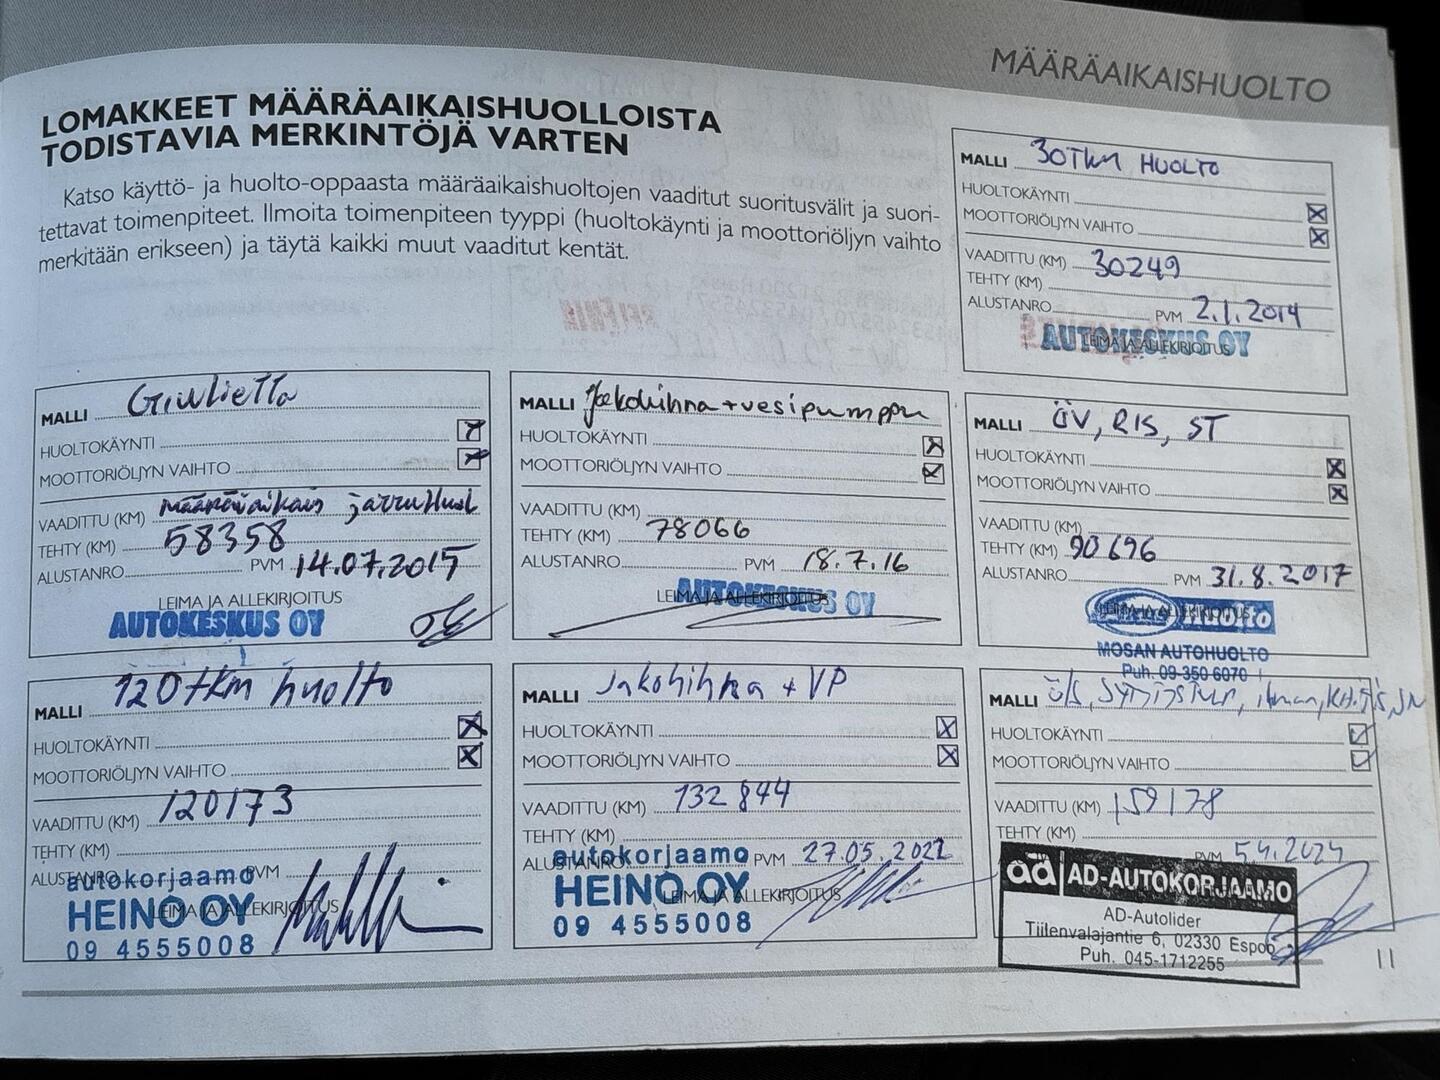 MÄÄRÄAIKAISHUOLTO
LOMAKKEET MÄÄRÄAIKAISHUOLLOISTA
TODISTAVIA MERKINTÖJÄ VARTEN
Katso käyttö- ja huolto-oppaasta määräaikaishuoltojen vaaditut suoritusvälit ja suori-
tettavat toimenpiteet. Ilmoita toimenpiteen tyyppi (huoltokäynti ja moottoriöljyn vaihto
merkitään erikseen) ja täytä kaikki muut vaaditut kentät.
MALLI 30TKM HUOLTO
HUOLTOKÄYNTI
MOOTTORIÖLJYN VAIHTO
VAADITTU (KM) 30249
TEHTY (KM)
ALUSTANRO PVM 2.1.2014
LEIMA JA ALLEKIRJOITUS
AUTOKESKUS OY
MALLI Giulietta
HUOLTOKÄYNTI
MOOTTORIÖLJYN VAIHTO
VAADITTU (KM) määräaikais jarruhuol
TEHTY (KM) 58358
ALUSTANRO PVM 14.07.2015
LEIMA JA ALLEKIRJOITUS
AUTOKESKUS OY
MALLI Jakohihna + vesipumppu
HUOLTOKÄYNTI
MOOTTORIÖLJYN VAIHTO
VAADITTU (KM)
TEHTY (KM) 78066
ALUSTANRO PVM 18.7.16
LEIMA JA ALLEKIRJOITUS
AUTOKESKUS OY
MALLI ÖV, RIS, ST
HUOLTOKÄYNTI
MOOTTORIÖLJYN VAIHTO
VAADITTU (KM)
TEHTY (KM) 90696
ALUSTANRO PVM 31.8.2017
LEIMA JA ALLEKIRJOITUS
Huolto
MOSAN AUTOHUOLTO
Puh. 09-350 6070
MALLI 120tkm huolto
HUOLTOKÄYNTI
MOOTTORIÖLJYN VAIHTO
VAADITTU (KM) 120173
TEHTY (KM)
ALUSTANRO PVM
LEIMA JA ALLEKIRJOITUS
autokorjaamo
HEINO OY
09 4555008
MALLI Jakohihna + VP
HUOLTOKÄYNTI
MOOTTORIÖLJYN VAIHTO
VAADITTU (KM) 132 844
TEHTY (KM)
ALUSTANRO PVM 27.05.2022
LEIMA JA ALLEKIRJOITUS
autokorjaamo
HEINO OY
09 4555008
MALLI
HUOLTOKÄYNTI
MOOTTORIÖLJYN VAIHTO
VAADITTU (KM) 159178
TEHTY (KM)
PVM 5.4.2024
ad AD-AUTOKORJAAMO
AD-Autolider
Tiilenvalajantie 6, 02330 Espoo
Puh. 045-1712255
11